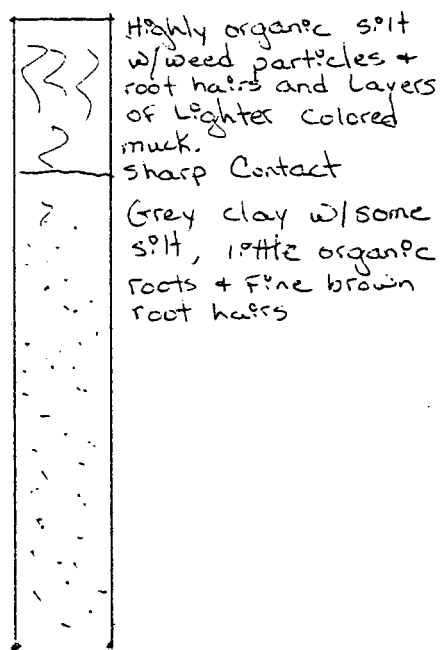 Highly organic silt
w/weed particles +
root hairs and Layers
of Lighter colored
muck.
Sharp Contact
Grey clay w/some
silt, little organic
roots + Fine brown
root hairs